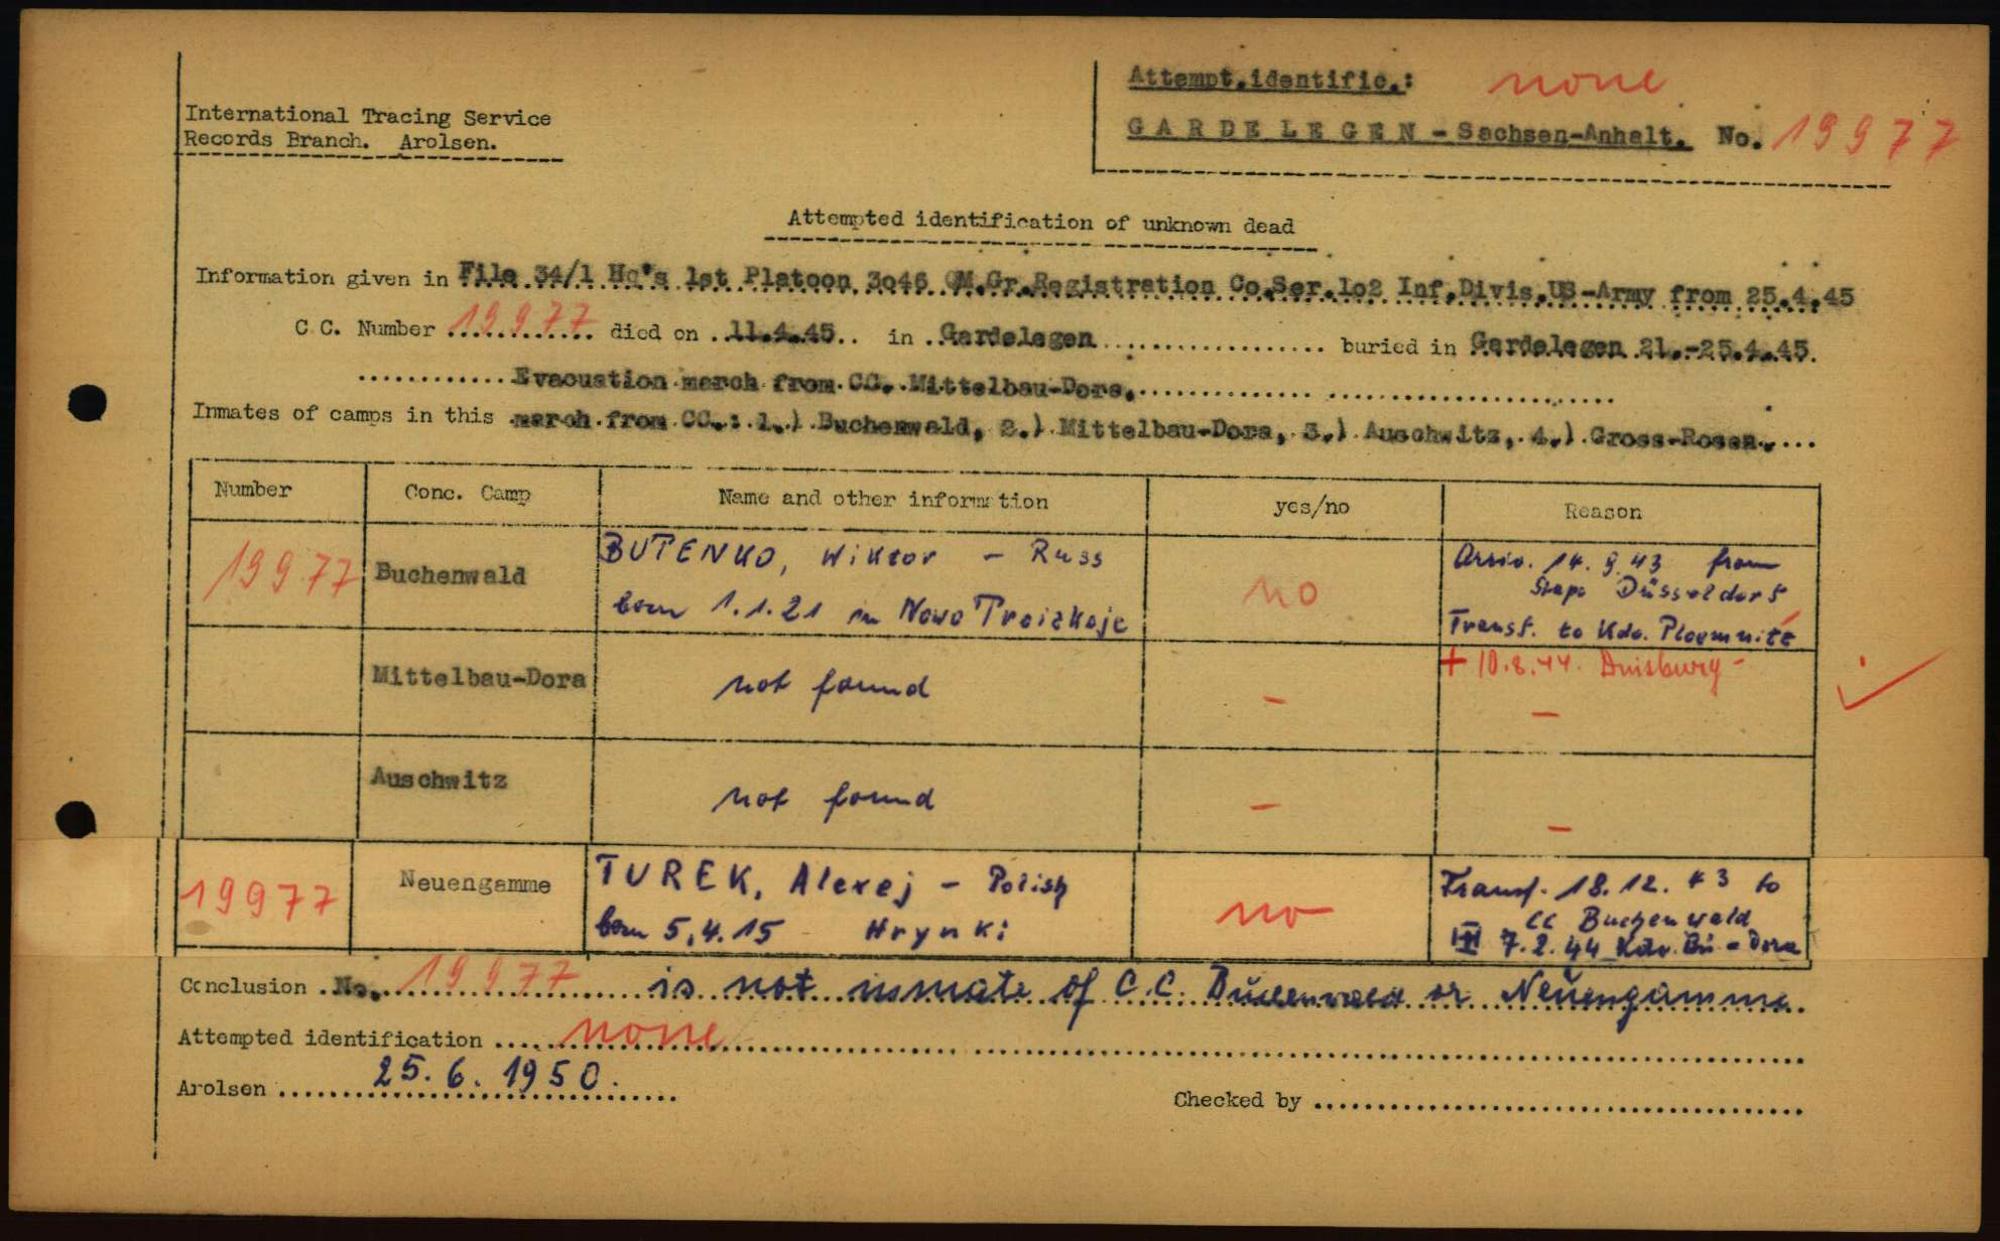 Attempt.identific.: none
International Tracing Service
Records Branch. Arolsen.
GARDELEGEN - Sachsen-Anhalt. No. 19977
Attempted identification of unknown dead
Information given in File 34/1 Hq's 1st Platoon 3046 QM.Gr.Registration Co.Ser.102 Inf.Divis.US-Army from 25.4.45
C.C. Number 19977 died on 11.4.45 in Gardelegen buried in Gardelegen 21.-25.4.45.
Evacuation march from CC. Mittelbau-Dora.
Inmates of camps in this march from CC.: 1.) Buchenwald, 2.) Mittelbau-Dora, 3.) Auschwitz, 4.) Gross-Rosen.
Number Conc. Camp Name and other information yes/no Reason
19977 Buchenwald BUTENKO, Wiktor - Russ no Arriv. 14.9.43 from
Stapo Düsseldorf
born 1.1.21 in Nowo Troizkoje Transf. to Kdo. Ploemnitz
+ 10.8.44. Duisburg -
Mittelbau-Dora not found - -
Auschwitz not found - -
19977 Neuengamme TUREK, Alexej - Polish no Transf. 18.12.43 to
CC Buchenwald
born 5.4.15 Hrynki 7.2.44 Kdo. Bu - Dora
Conclusion No. 19977 is not inmate of C.C. Buchenwald or Neuengamme.
Attempted identification none
Arolsen 25.6.1950.
Checked by